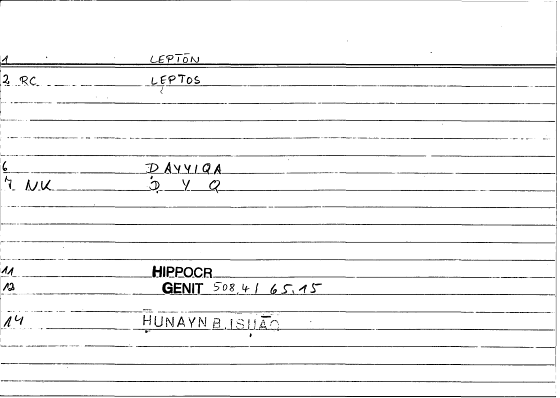 1 LEPTŌN
2 RC LEPTOS
6 DAYYIQA
7 NK D Y Q
11 HIPPOCR
12 GENIT 508,4 / 65,15
14 ḤUNAYN B. ISḤĀQ